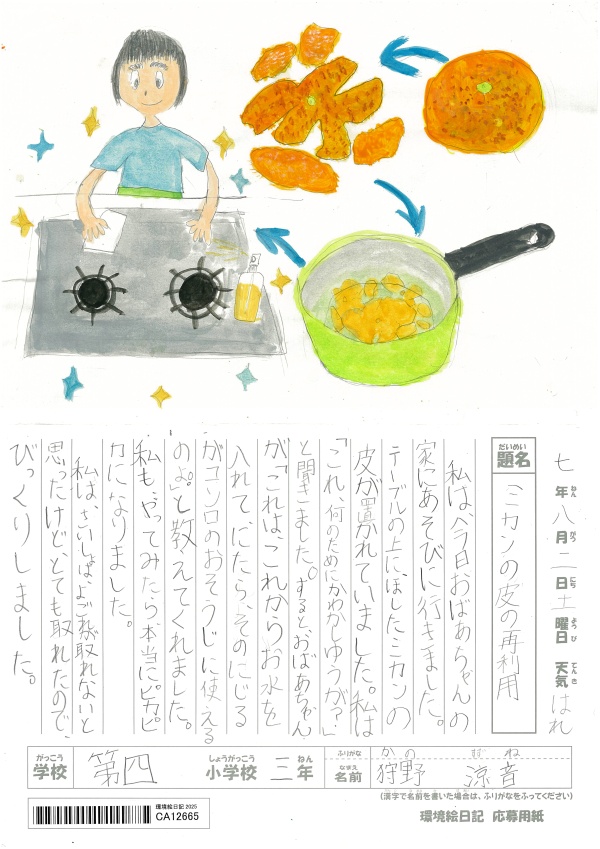 七年八月二日土曜日 天気はれ
ねん がつ にち ようび てんき
だいめい
題名 ミカンの皮の再利用
私は、今日おばあちゃんの
家にあそびに行きました。
テーブルの上にほしたミカンの
皮が置かれていました。私は
「これ、何のためにかわかしゆうが？」
と聞きました。すると、おばあちゃん
が「これは、これからお水を
入れて、にたら、そのにじる
がコンロのおそうじに使える
のよ。」と教えてくれました。
私も、やってみたら本当にピカピ
カになりました。
私は、さいしょは、よごれが取れないと
思ったけど、とても取れたので、
びっくりしました。
がっこう しょうがっこう ねん ふりがな かの すずね
学校 第四 小学校 三年 なまえ 名前 狩野 涼音
(漢字で名前を書いた場合は、ふりがなをふってください)
環境絵日記 2025
CA12665
環境絵日記 応募用紙